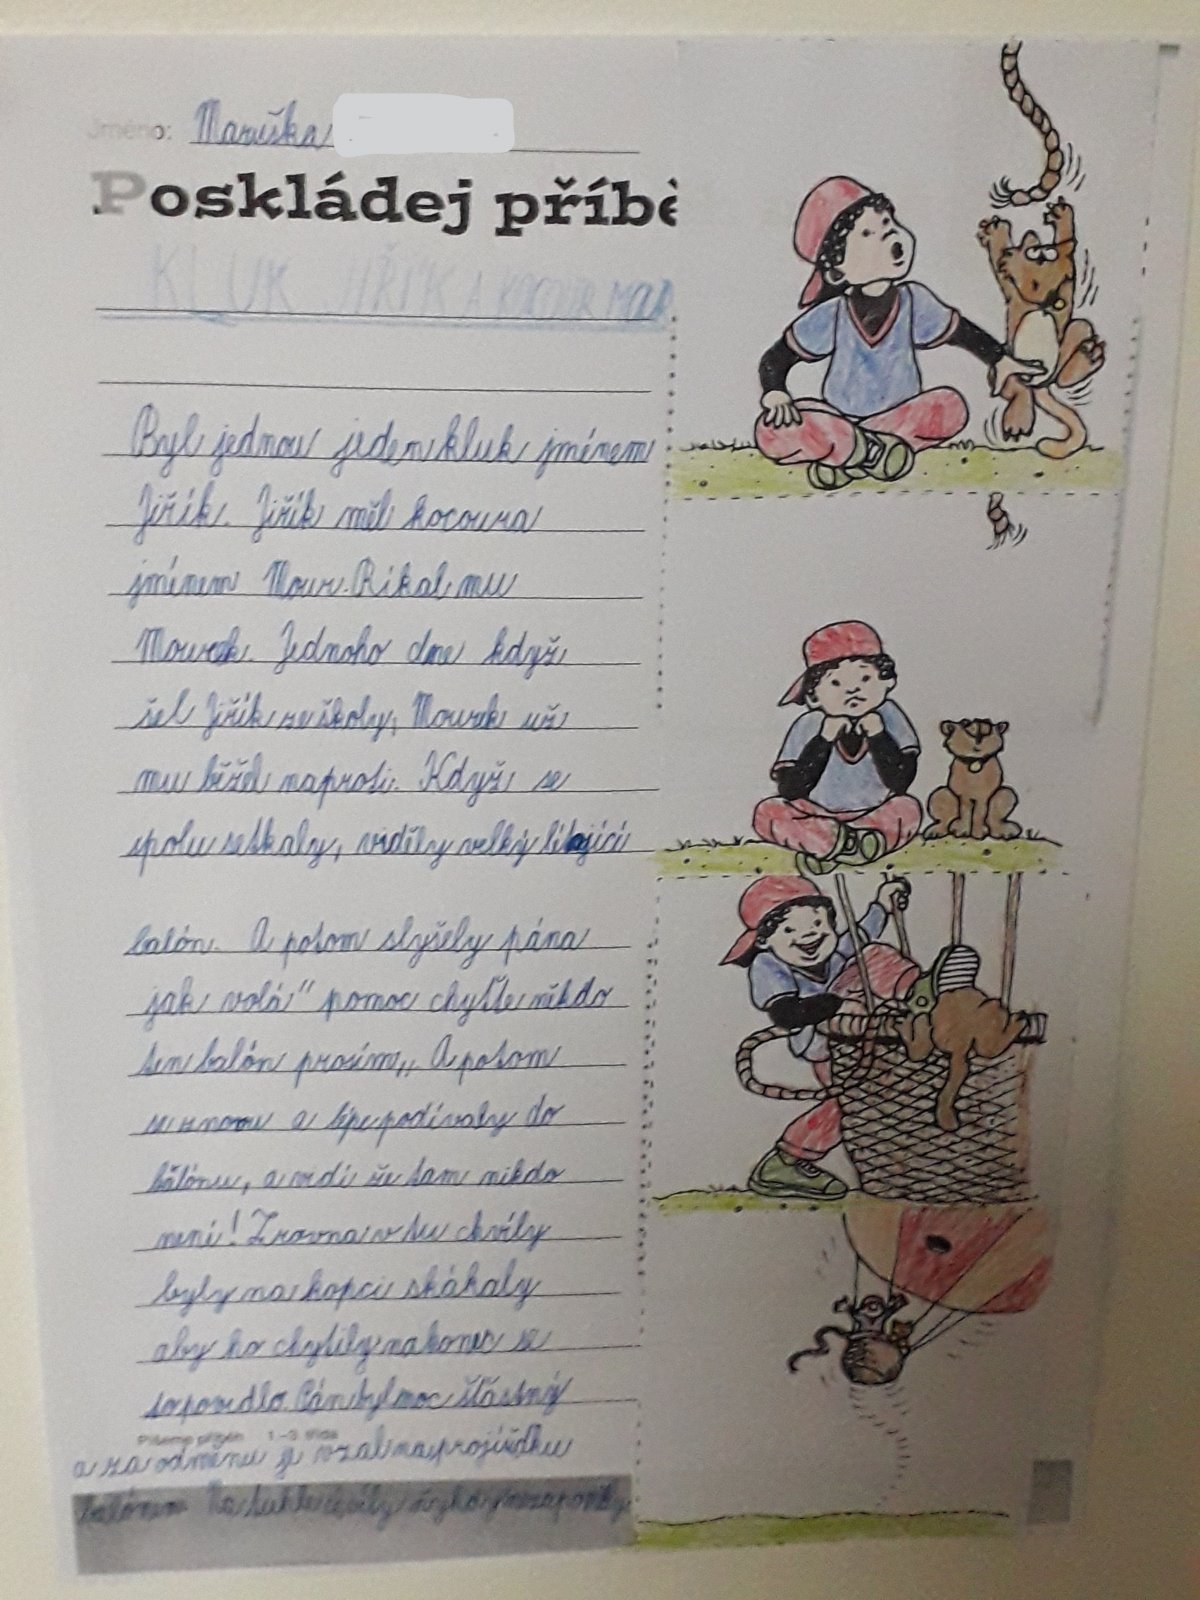 Jméno: Maruška
Poskládej příbě
KLUK JIŘÍK A KOCOUR MOUR
Byl jednou jeden kluk jménem
Jiřík. Jiřík měl kocoura
jménem Mour. Říkal mu
Mourek. Jednoho dne když
šel Jiřík ze školy, Mourek už
mu běžel naproti. Když se
spolu setkaly, viděly velký létající
balón. A potom slyšely pána
jak volá" pomoc chyťte někdo
ten balón prosím,, A potom
se znovu a lépe podívaly do
bálónu, a vidí že tam nikdo
není! Zrovna v tu chvíly
byly na kopci skákaly
aby ho chytily nakonec se
to povedlo. Pán byl moc šťástný
Píšeme příběh 1.-3. třída
a za odměnu je vzal na projížďku
balónem. Na tuhle chvíly